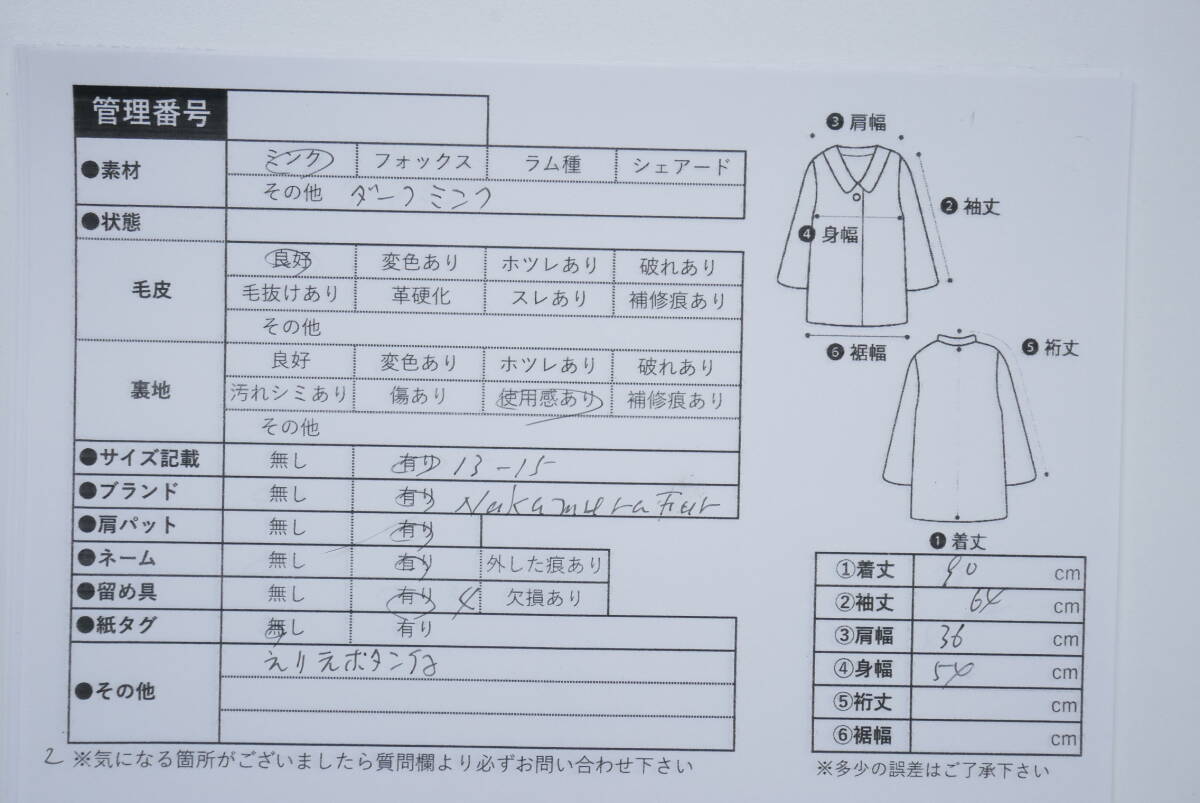 管理番号
●素材 ミンク フォックス ラム種 シェアード
その他 ダークミンク
●状態
毛皮 良好 変色あり ホツレあり 破れあり
毛抜けあり 革硬化 スレあり 補修痕あり
その他
裏地 良好 変色あり ホツレあり 破れあり
汚れシミあり 傷あり 使用感あり 補修痕あり
その他
●サイズ記載 無し 有り 13-15
●ブランド 無し 有り Nakamura Fur
●肩パット 無し 有り
●ネーム 無し 有り 外した痕あり
●留め具 無し 有り 4 欠損あり
●紙タグ 無し 有り
●その他 ボタン
2 ※気になる箇所がございましたら質問欄より必ずお問い合わせ下さい
❸ 肩幅
❷ 袖丈
❹ 身幅
❻ 裾幅
❺ 裄丈
❶ 着丈
①着丈 90 cm
②袖丈 64 cm
③肩幅 36 cm
④身幅 54 cm
⑤裄丈 cm
⑥裾幅 cm
※多少の誤差はご了承下さい